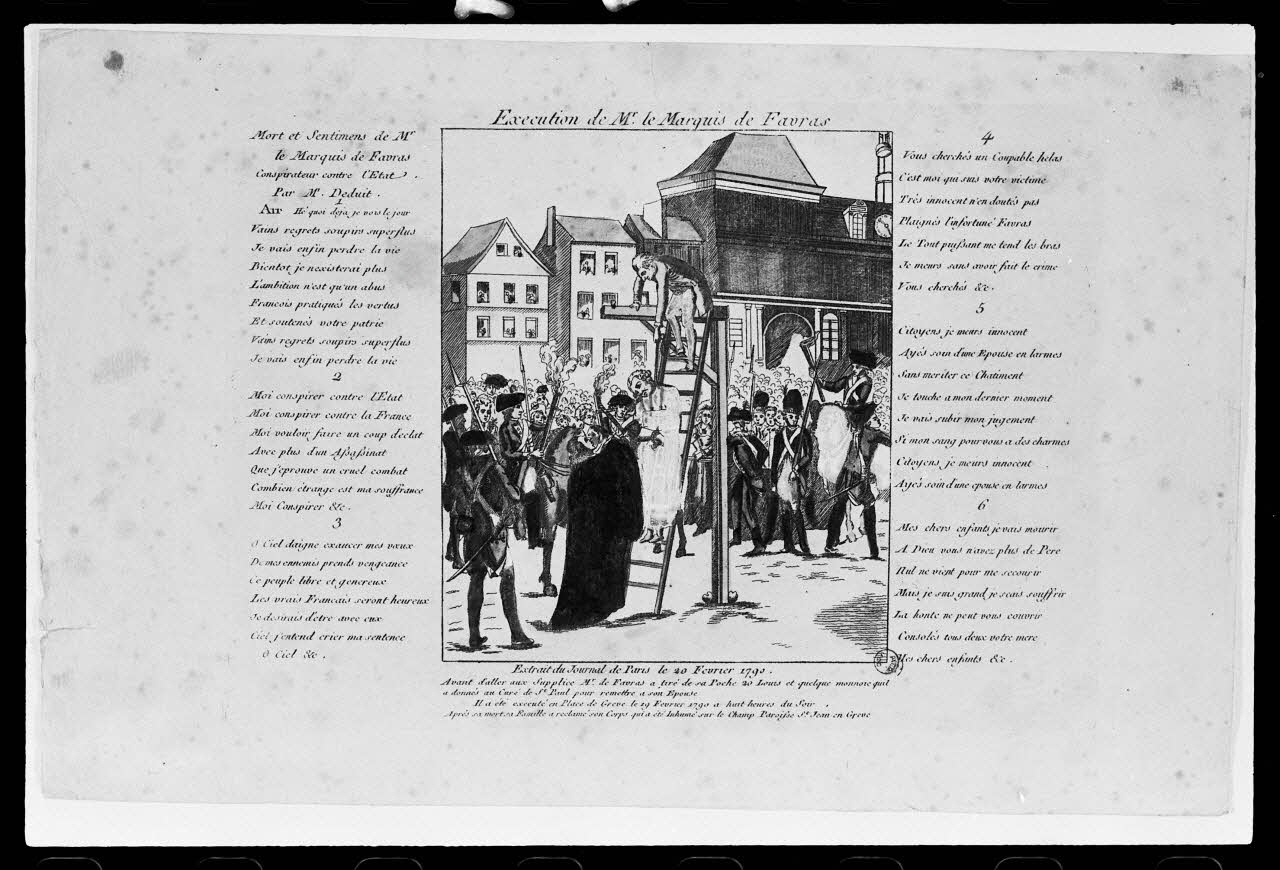 Execution de Mr. le Marquis de Favras
Mort et Sentimens de Mr
le Marquis de Favras
Conspirateur contre l'Etat.
Par Mr. Deduit.
1
Air Hé quoi deja je vois le jour
Vains regrets soupirs superflus
Je vais enfin perdre la vie
Bientot je nexisterai plus
L'ambition n'est qu'un abus
Francois pratiqués les vertus
Et soutenés votre patrie
Vains regrets soupirs superflus
Je vais enfin perdre la vie
2
Moi conspirer contre l'Etat
Moi conspirer contre la France
Moi vouloir faire un coup d'eclat
Avec plus d'un Assassinat
Que j'eprouve un cruel combat
Combien étrange est ma souffrance
Moi Conspirer &c.
3
O Ciel daigne exaucer mes vœux
De mes ennemis prends vengeance
Ce peuple libre et genereux
Les vrais Francais seront heureux
Je desirais d'etre avec eux
Ciel j'entend crier ma sentence
O Ciel &c.
4
Vous cherchés un Coupable helas
C'est moi qui suis votre victime
Très innocent n'en doutés pas
Plaignés l'infortuné Favras
Le Tout puissant me tend les bras
Je meurs sans avoir fait le crime
Vous cherchés &c.
5
Citoyens je meurs innocent
Ayés soin d'une Epouse en larmes
Sans meriter ce Chatiment
Je touche a mon dernier moment
Je vais subir mon jugement
Si mon sang pour vous a des charmes
Citoyens je meurs innocent
Ayés soin d'une epouse en larmes
6
Mes chers enfants je vais mourir
A Dieu vous n'avez plus de Pere
Nul ne vient pour me secourir
Mais je suis grand je scais souffrir
La honte ne peut vous couvrir
Consolés tous deux votre mere
Mes chers enfants &c.
Extrait du Journal de Paris le 20 Fevrier 1790.
Avant d'aller aux Supplice Mr. de Favras a tiré de sa Poche 20 Louis et quelque monnoie quil
a donnés au Curé de St. Paul pour remettre a son Epouse
Il a été executé en Place de Greve le 19 Fevrier 1790 a huit heures du Soir.
Après sa mort sa Famille a reclamé son Corps qui a été Inhumé sur le Champ Paroisse St. Jean en Greve